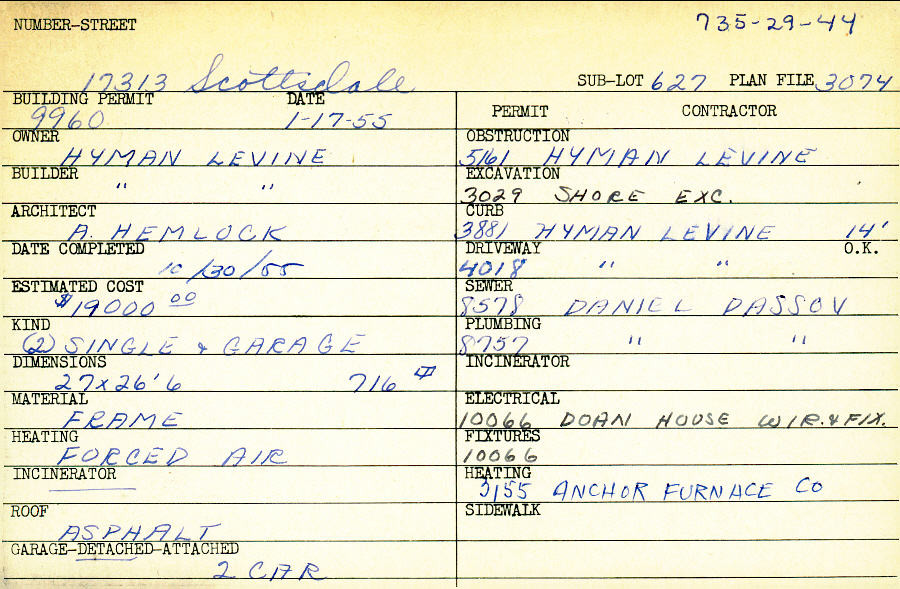 NUMBER-STREET 735-29-44
17313 Scottsdale SUB-LOT 627 PLAN FILE 3074
BUILDING PERMIT DATE
9960 1-17-55
OWNER
HYMAN LEVINE
BUILDER
" "
ARCHITECT
A. HEMLOCK
DATE COMPLETED
10/30/55
ESTIMATED COST
$19000 00
KIND
(2) SINGLE & GARAGE
DIMENSIONS
27x26'6 716
MATERIAL
FRAME
HEATING
FORCED AIR
INCINERATOR
ROOF
ASPHALT
GARAGE-DETACHED-ATTACHED
2 CAR
PERMIT CONTRACTOR
OBSTRUCTION
5161 HYMAN LEVINE
EXCAVATION
3029 SHORE EXC.
CURB
3881 HYMAN LEVINE 14'
DRIVEWAY O.K.
4018 " "
SEWER
8578 DANIEL DASSOV
PLUMBING
8757 " "
INCINERATOR
ELECTRICAL
10066 DOAN HOUSE WIR. & FIX.
FIXTURES
10066
HEATING
3155 ANCHOR FURNACE CO
SIDEWALK